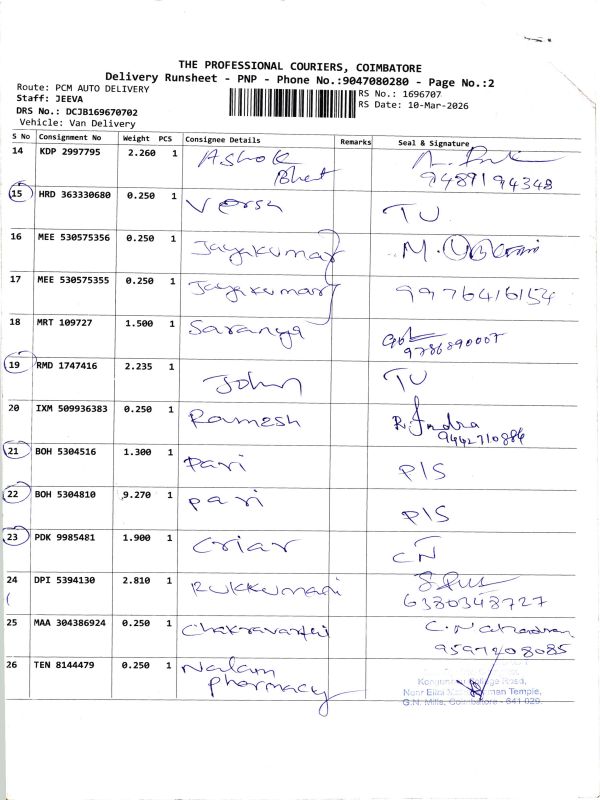 THE PROFESSIONAL COURIERS, COIMBATORE
Delivery Runsheet - PNP - Phone No.:9047080280 - Page No.:2
Route: PCM AUTO DELIVERY
RS No.: 1696707
Staff: JEEVA
RS Date: 10-Mar-2026
DRS No.: DCJB169670702
Vehicle: Van Delivery
S No Consignment No Weight PCS Consignee Details Remarks Seal & Signature
14 KDP 2997795 2.260 1 Ashok
Bhat 9489194348
15 HRD 363330680 0.250 1 Versh TU
16 MEE 530575356 0.250 1 Jayakumar M.
17 MEE 530575355 0.250 1 Jayakumar 9976416154
18 MRT 109727 1.500 1 Saranya
9786890007
19 RMD 1747416 2.235 1 John TU
20 IXM 509936383 0.250 1 Ramesh R. Indra
9442710884
21 BOH 5304516 1.300 1 Pari P/S
22 BOH 5304810 9.270 1 pari P/S
23 PDK 9985481 1.900 1 Criar CN
24 DPI 5394130 2.810 1 Rukkumani
6380348727
25 MAA 304386924 0.250 1 Chakravarthi C.
9597208085
26 TEN 8144479 0.250 1 Nalam
pharmacy
Road,
Temple,
G.N. Mills, Coimbatore - 641 029.